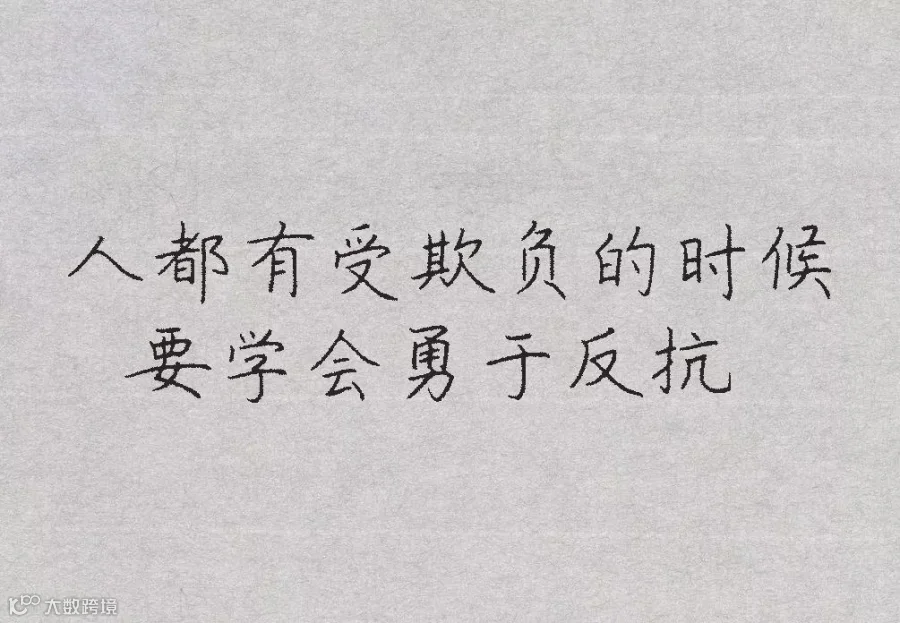 人都有受欺负的时候
要学会勇于反抗
大数跨境